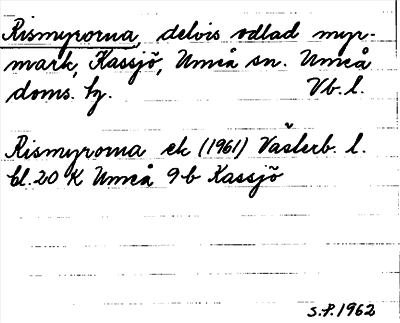 Rismyrorna, delvis odlad myr-
mark, Kassjö, Umeå sn. Umeå
doms. hg. Vb. l.
Rismyrorna ek (1961) Västerb. l.
bl. 20 K Umeå 9b Kassjö
S.P. 1962